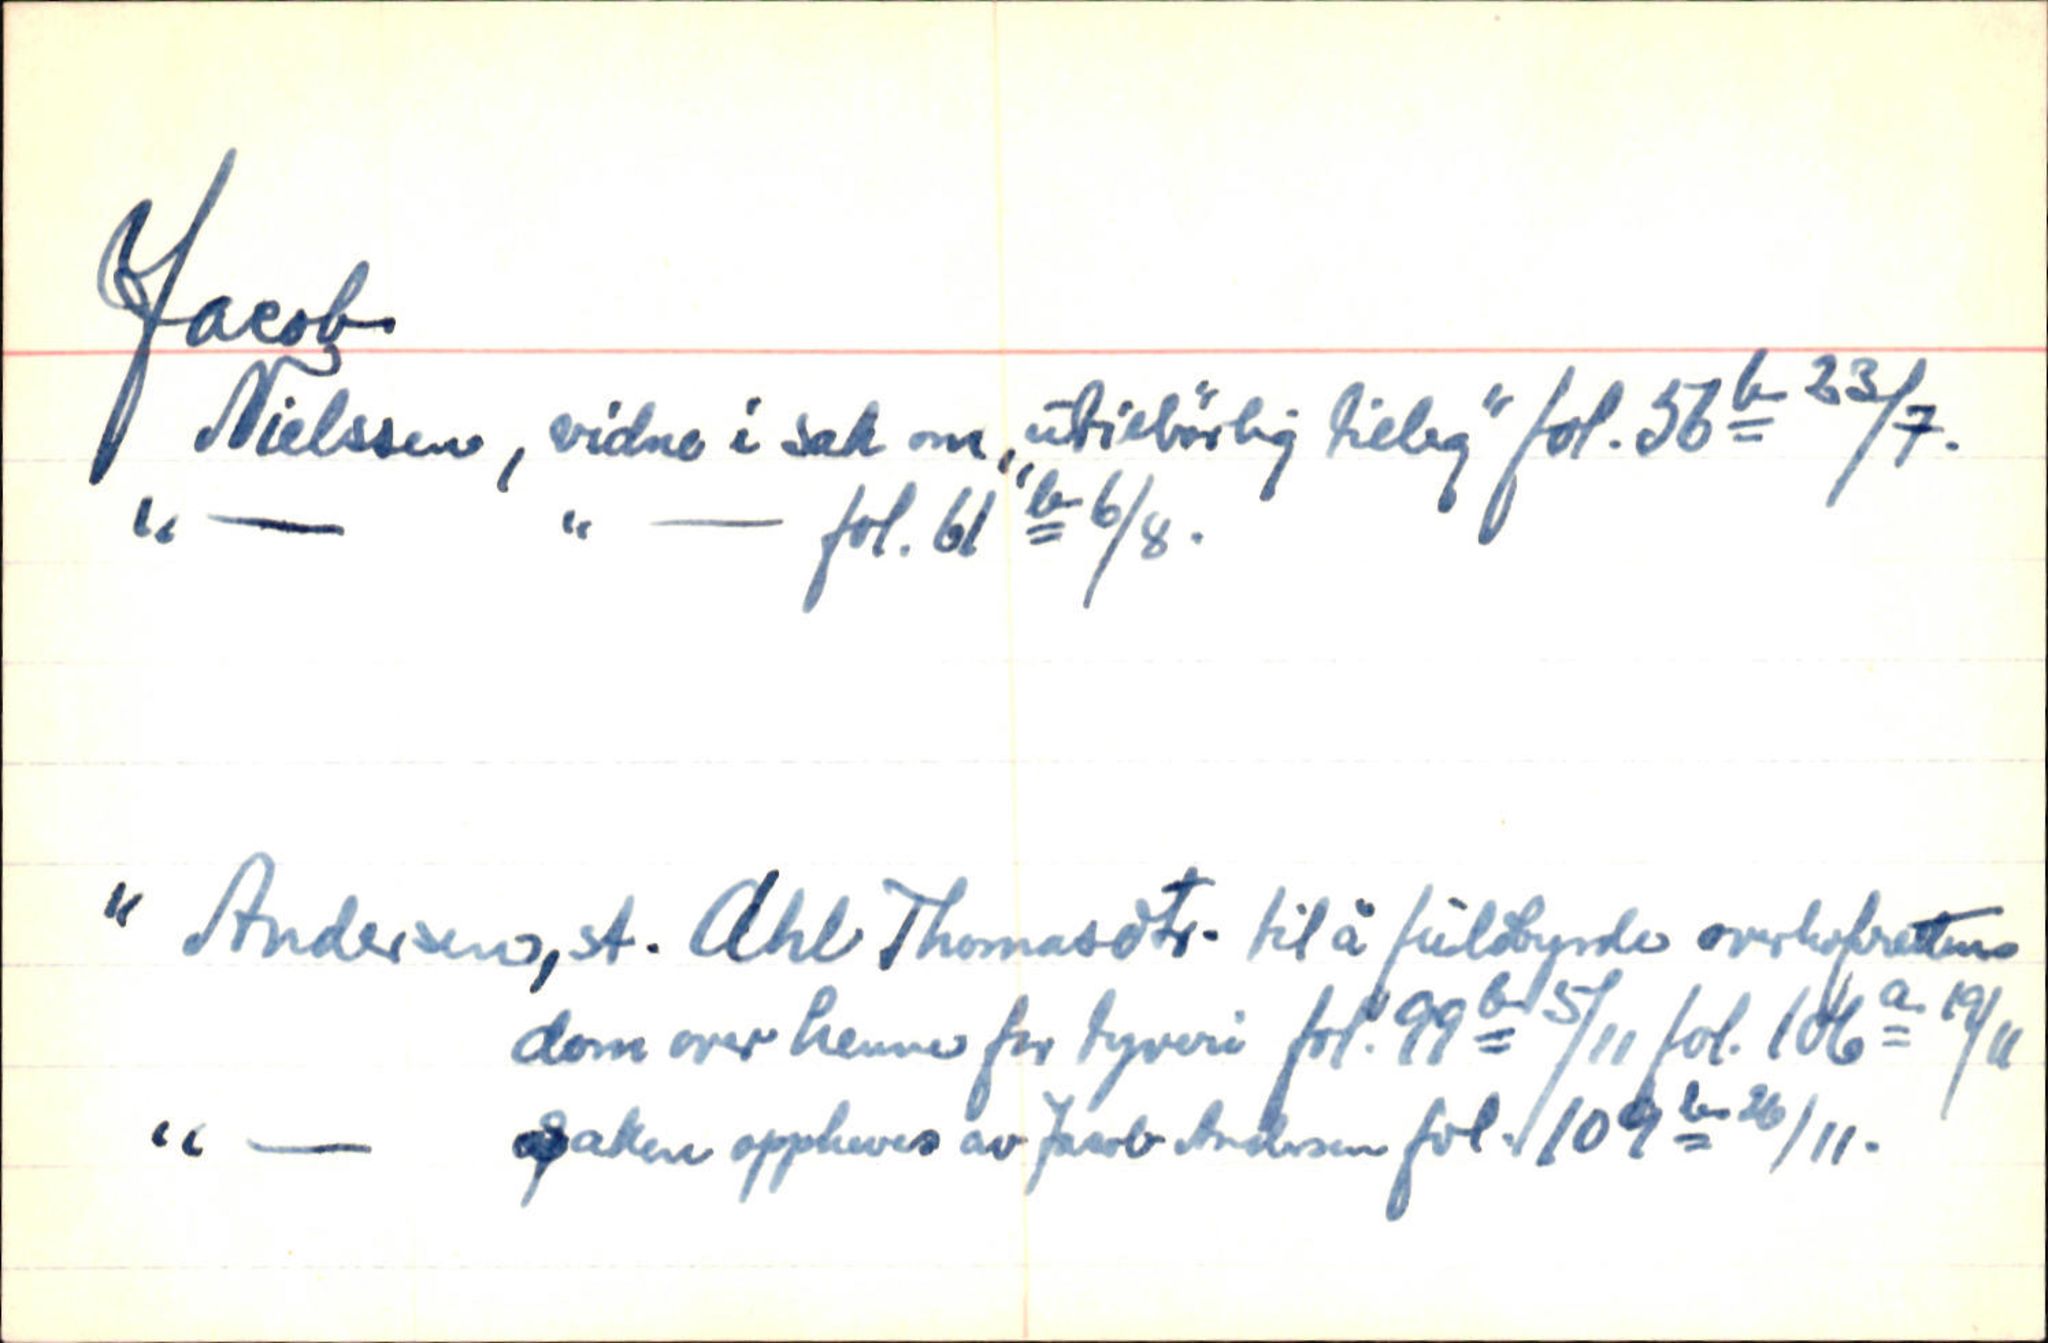 Jacob
Nielssen, vidne i sak om „utilbörlig tileg“ fol. 56 b 23/7.
" — " — fol. 61 b 6/8.
" Andersen, st. Ahl Thomasdtr. til å fuldbyrde overhofrettens
dom over henne for tyveri fol. 99 b 5/11 fol. 106 a 19/11
" — saken oppheves av Jacob Andersen fol. 109 b 26/11.